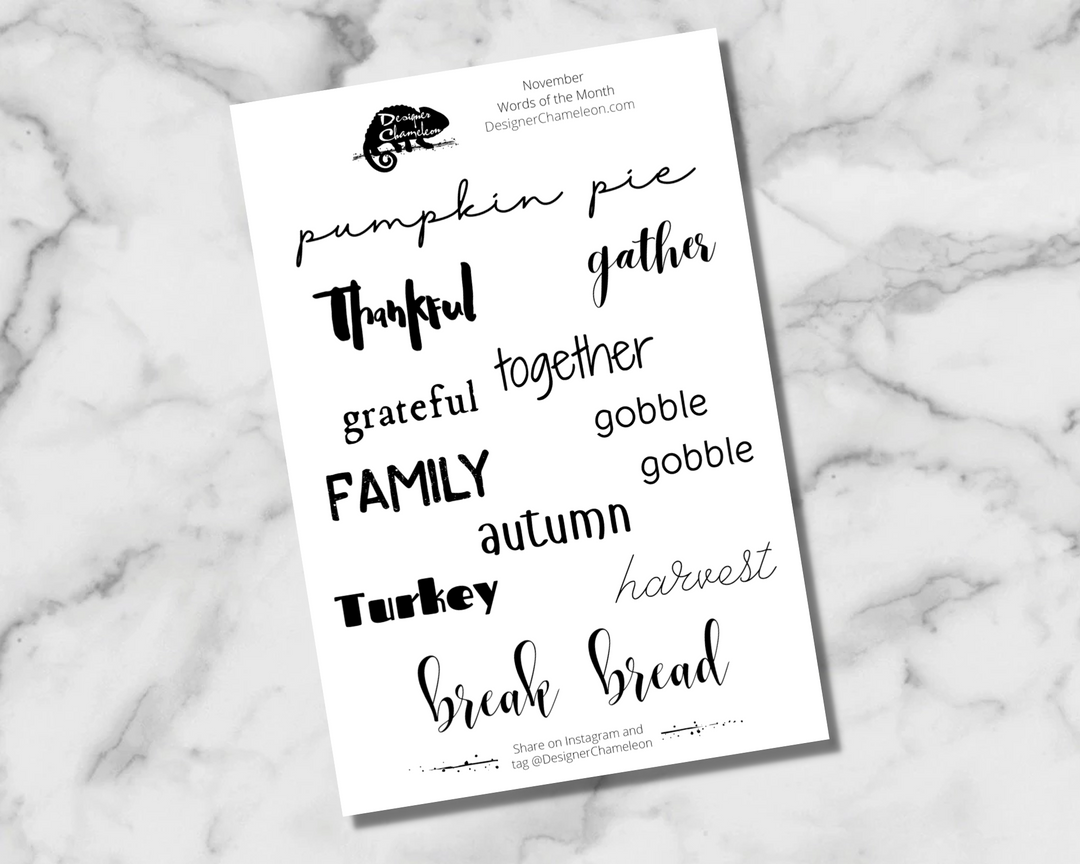 Designer
Chameleon
November
Words of the Month
DesignerChameleon.com
pumpkin pie
gather
Thankful
together
grateful
gobble
gobble
FAMILY
autumn
harvest
Turkey
break bread
Share on Instagram and
tag @DesignerChameleon